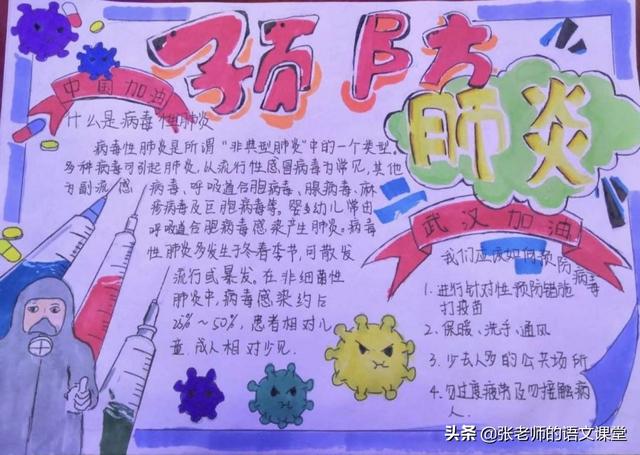 预防
肺炎
中国加油
什么是病毒性肺炎
病毒性肺炎是所谓“非典型肺炎”中的一个类型,
多种病毒可引起肺炎,从流行性感冒病毒为常见,其他
为副流感 病毒、呼吸道合胞病毒、腺病毒、麻
疹病毒及巨胞病毒等。婴幼儿常由
呼吸道合胞病毒感染产生肺炎。病毒
性肺炎多发生于冬春季节,可散发
流行或暴发。在非细菌性
肺炎中,病毒感染约占
25%~50%,患者相对儿
童,成人相对少见.
武汉加油
我们应该如何预防病毒
1.进行针对性预防
打疫苗
2.保暖、洗手、通风
3.少去人多的公共场所
4.勿过度疲劳及勿接触病
人.
头条@张老师的语文课堂